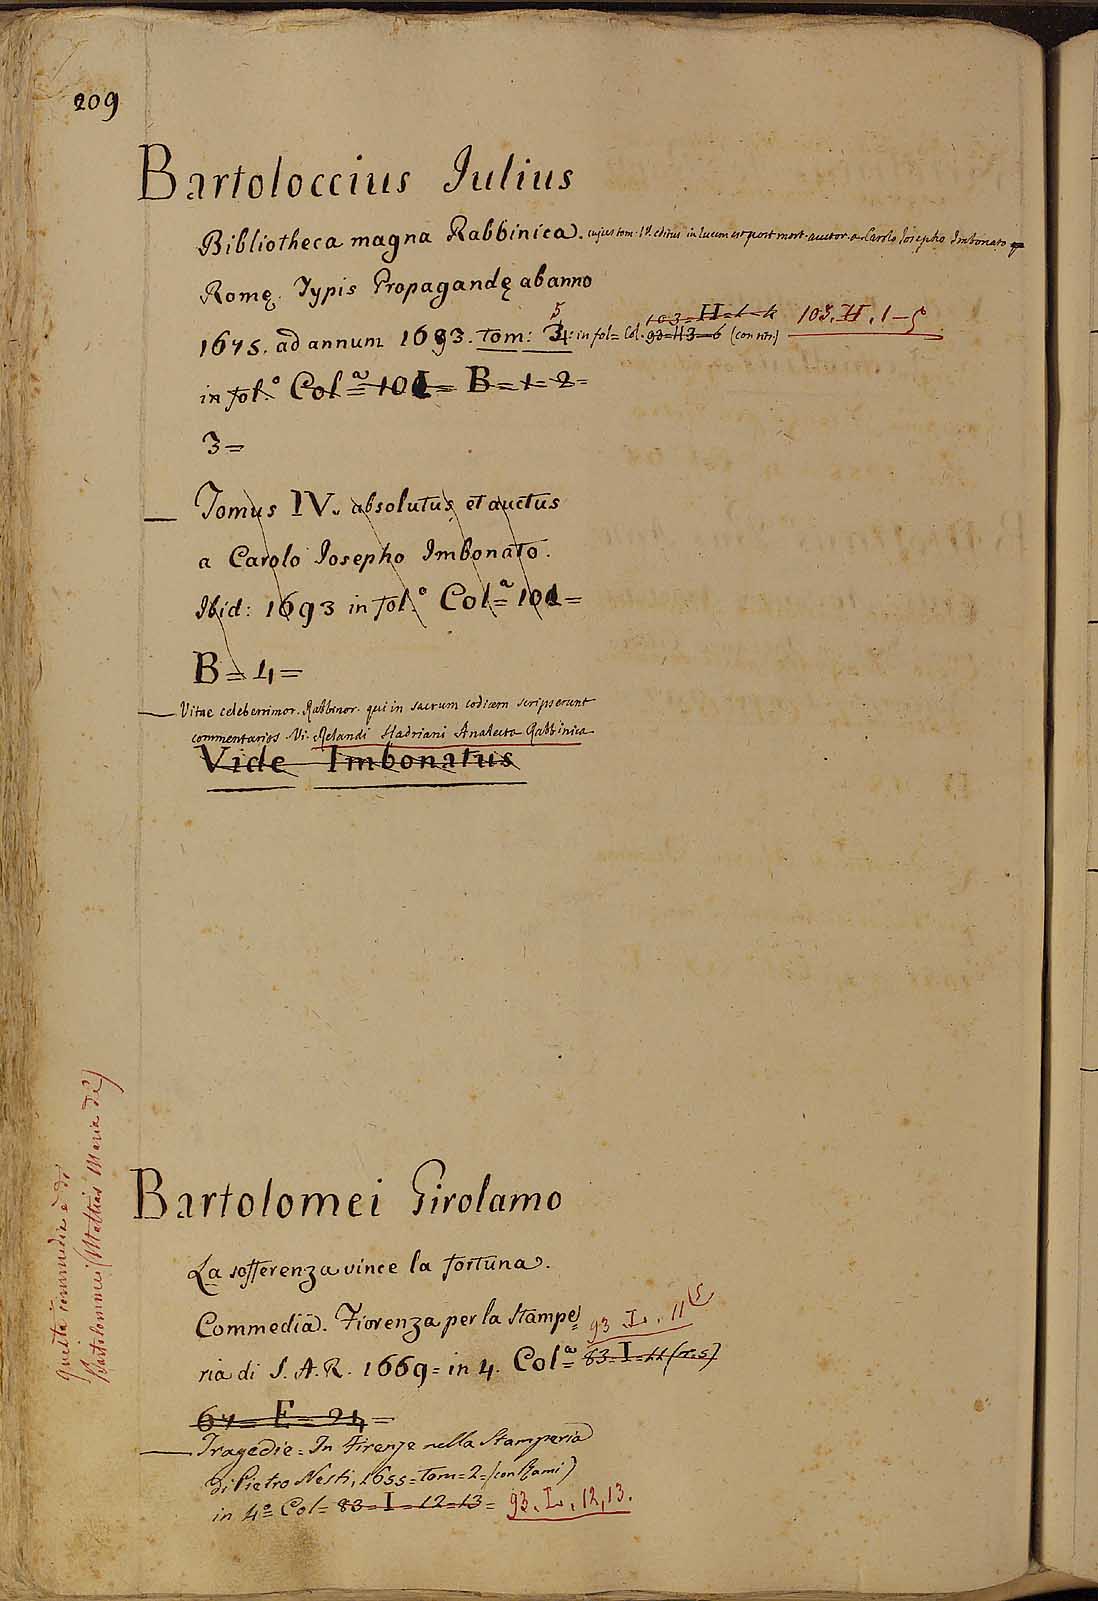 209
Bartoloccius Julius
Bibliotheca magna Rabbinica. cujus tom. IV. editus in lucem est post mort. auctor. a Carolo Josepho Imbonato
Romę. Typis Propagandę ab anno
1675. ad annum 1693. tom: 5 in fol= Col. 103=H=1-4 93=H3=6 103. H. 1-5
in fol.º Colª= 101= B=1=2=
3=
Tomus IV. absolutus et auctus
a Carolo Josepho Imbonato.
Ibid: 1693 in fol.º Colª= 101=
B=4=
Vitae celeberrimor. Rabbinor. qui in sacrum codicem scripserunt
commentarios. Vi. Relandi Hadriani Analecta Rabbinica
Vide Imbonatus
questa commedia è di
Bartolommei (Mattias Maria de')
Bartolomei Girolamo
La sofferenza vince la fortuna.
Commedia. Fiorenza per la Stampe=
93. L. 11(5
ria di S. A. R. 1669= in 4. Colª 83=I=11(n.5)
67=E=24=
Tragedie= In Firenze nella Stamperia
di Pietro Nesti, 1655= Tom=2=(con Rami)
in 4º= Col= 83=I=12=13= 93. L. 12,13.